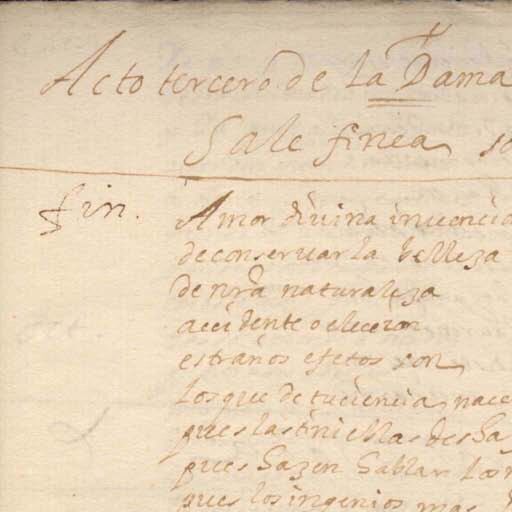 Acto tercero de la Dama
Sale finea so
fin. Amor divina invencio
de conservar la belleza
de nrã naturaleza
accidente o elecion
estraños efetos son
los que de tu ciencia nace
pues las tinieblas desha
pues hazen hablar los
pues los ingenios mas